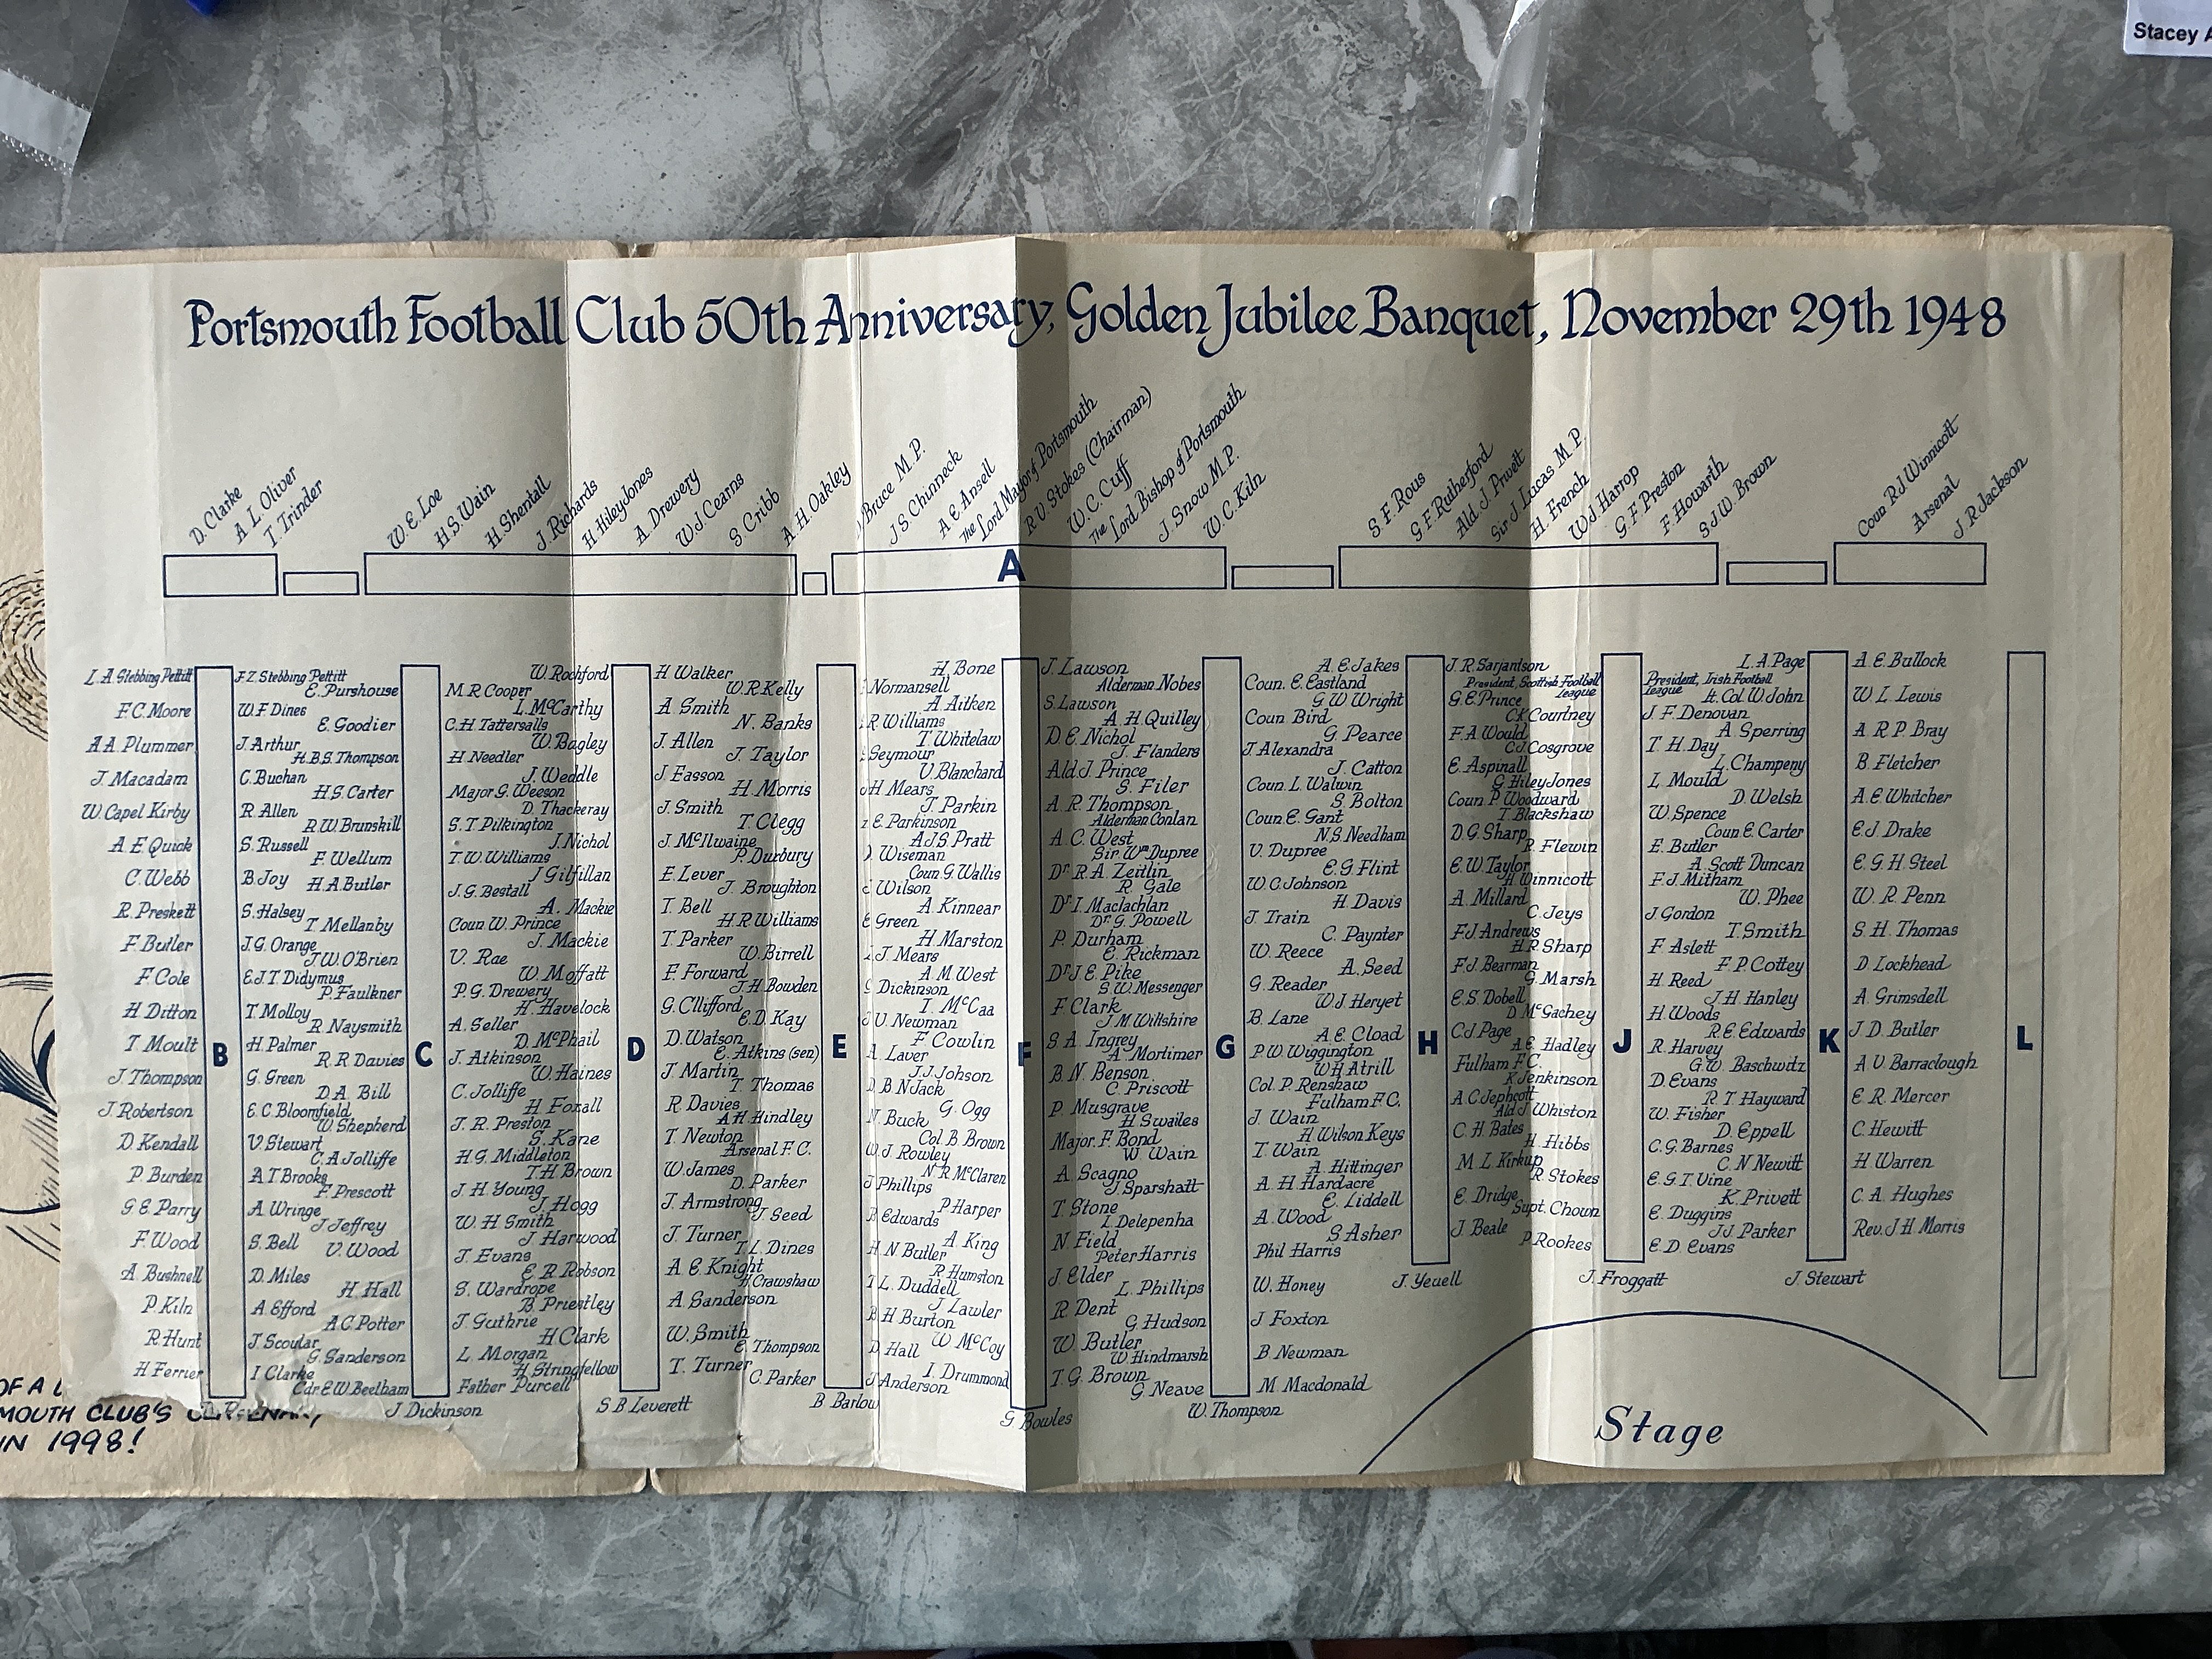 Stacey A
Portsmouth Football Club 50th Anniversary, Golden Jubilee Banquet, November 29th 1948
D. Clarke
A. L. Oliver
T. Trinder
W. E. Loe
H. S. Wain
H. Shentall
J. Richards
H. Hiley Jones
A. Drewery
W. J. Cearns
S. Cribb
A. H. Oakley
Bruce M.P.
J. S. Chinneck
A. E. Ansell
The Lord Mayor of Portsmouth
R. V. Stokes (Chairman)
W. C. Cuff
The Lord Bishop of Portsmouth
J. Snow M.P.
W. C. Kiln
S. F. Rous
G. F. Rutherford
Ald. J. Privett
Sir J. Lucas M P
H. French
W. J. Harrop
G. F. Preston
F. Howarth
S J. W. Brown
Coun R J Winnicott
Arsenal
J. R Jackson
A
L. A. Stebbing Pettitt
F.C. Moore
A A. Plummer
J. Macadam
W. Capel Kirby
A E. Quick
C. Webb
R. Preskett
F. Butler
F. Cole
H. Ditton
T Moult
J. Thompson
J. Robertson
D. Kendall
P. Burden
G. E. Parry
F. Wood
A. Bushnell
P. Kiln
R. Hunt
H. Ferrier
B
F. Z. Stebbing Pettitt
W. F Dines
J. Arthur
C. Buchan
R. Allen
S. Russell
B. Joy
S. Halsey
J. G. Orange
E.J.T. Didymus
T. Molloy
H. Palmer
G. Green
E. C. Bloomfield
V. Stewart
A T Brooks
A Wringe
S. Bell
D. Miles
A Efford
J. Scoular
I Clarke
E. Purshouse
E. Goodier
H.B.S. Thompson
H. S. Carter
R. W. Brunskill
F. Wellum
H. A. Butler
T. Mellanby
J.W. O'Brien
P. Faulkner
R. Naysmith
R. R Davies
D. A. Bill
W. Shepherd
C. A Jolliffe
F. Prescott
J Jeffrey
V. Wood
H. Hall
A C Potter
G. Sanderson
Cdr. E W. Beetham
C
J Dickinson
M. R Cooper
C. H Tattersalls
H. Needler
Major G. Weeson
S. T Pilkington
T. W. Williams
J. G. Bestall
Coun W. Prince
V. Rae
P. G. Drewery
A. Seller
J. Atkinson
C. Jolliffe
J. R. Preston
H. G. Middleton
J. H. Young
W. H Smith
J. Evans
S. Wardrope
J. Guthrie
L. Morgan
Father Purcell
W. Rochford
L. McCarthy
W. Bagley
J. Weddle
D. Thackeray
J. Nichol
J Gilfillan
A. Mackie
J. Mackie
W. Moffatt
H. Havelock
D. McPhail
W. Haines
H Foxall
S. Kane
T. H. Brown
J. Hogg
J Harwood
E R Robson
B. Priestley
H. Clark
H. Stringfellow
D
S B Leverett
H Walker
A Smith
J. Allen
J Fasson
J. Smith
J. McIlwaine
E. Lever
T. Bell
T. Parker
F. Forward
G. Cllifford
D. Watson
J. Martin
R. Davies
T. Newton
W. James
J. Armstrong
J. Turner
A E. Knight
A. Sanderson
W. Smith
T. Turner
W. R Kelly
N. Banks
J. Taylor
H Morris
T. Clegg
P. Duxbury
J. Broughton
H. R Williams
W. Birrell
J. H. Bowden
E. D. Kay
E. Atkins (sen)
T Thomas
A H Hindley
Arsenal F. C.
D. Parker
J. Seed
T. L. Dines
H. Crawshaw
E. Thompson
C. Parker
E
B. Barlow
Normansell
R Williams
Seymour
H. Mears
E. Parkinson
Wiseman
Wilson
Green
J. Mears
Dickinson
V. Newman
A. Laver
B N Jack
N. Buck
W. J Rowley
J Phillips
B. Edwards
H. N Butler
T L. Duddell
B. H Burton
D. Hall
J Anderson
H. Bone
A. Aitken
T. Whitelaw
V. Blanchard
J. Parkin
A J.S. Pratt
Coun. G. Wallis
A. Kinnear
H. Marston
A. M. West
T. McCaa
F. Cowlin
J.J. Johson
G. Ogg
Col. B Brown
N R McClaren
P Harper
A King
R Humston
J Lawler
W McCoy
I. Drummond
F
G Bowles
J. Lawson
S. Lawson
D. E. Nichol
Ald. J. Prince
A. R. Thompson
A. C. West
Dr. R A. Zeitlin
Dr. I. Maclachlan
P. Durham
Dr. J E. Pike
F. Clark
S. A. Ingrey
B. N. Benson
P. Musgrave
Major. F. Bond
A. Scagno
T. Stone
N. Field
J. Elder
R. Dent
W. Butler
T. G. Brown
Alderman Nobes
A. H. Quilley
J. Flanders
S. Filer
Alderman Conlan
Sir. Wm Dupree
R. Gale
Dr. G. Powell
E. Rickman
S. W. Messenger
J. M. Wiltshire
A. Mortimer
C. Priscott
H Swailes
W Wain
J. Sparshatt
I. Delepenha
Peter Harris
L. Phillips
G. Hudson
W. Hindmarsh
G. Neave
G
W. Thompson
Coun. E. Eastland
Coun Bird
J Alexandra
Coun. L. Walwin
Coun. E. Gant
V. Dupree
W. C. Johnson
J. Train
W. Reece
G. Reader
B. Lane
P W. Wiggington
Col. P. Renshaw
J. Wain
T. Wain
A. H Hardacre
A. Wood
Phil Harris
W. Honey
J Foxton
B Newman
M. Macdonald
A. E. Jakes
G W Wright
G Pearce
J. Catton
S. Bolton
N. S. Needham
E. G. Flint
H. Davis
C. Paynter
A. Seed
W. J Heryet
A. E. Cload
W H Atrill
Fulham F. C.
H. Wilson Keys
A. Hittinger
E. Liddell
S Asher
H
J. Yeuell
J. R. Sarjantson
G E. Prince
F. A Would
E. Aspinall
Coun. P. Woodward
D. G. Sharp
E. W. Taylor
A. Millard
F. J Andrews
F. J. Bearman
E. S. Dobell
C. J. Page
Fulham F. C.
A. C Jephcott
C. H. Bates
M. L. Kirkup
E. Dridge
J. Beale
President, Scottish Football
League
C K Courtney
C. J. Cosgrove
G Hiley Jones
T. Blackshaw
R. Flewin
H. Winnicott
C. Jeys
H. R. Sharp
G. Marsh
D. McGachey
A. E. Hadley
K. Jenkinson
Ald. J Whiston
H. Hibbs
R. Stokes
Supt. Chown
P. Rookes
J
J. Froggatt
President, Irish Football
League
J. F. Denovan
T. H. Day
L. Mould
W. Spence
E. Butler
F. J. Mitham
J. Gordon
F Aslett
H. Reed
H. Woods
R. Harvey
D. Evans
W. Fisher
C. G. Barnes
E. G. T. Vine
E. Duggins
E. D. Evans
L. A. Page
Lt. Col. W. John
A Sperring
L. Champeny
D. Welsh
Coun E. Carter
A. Scott Duncan
W. Phee
T. Smith
F. P. Cottey
J. H. Hanley
R. E. Edwards
G. W. Baschwitz
R T Hayward
D. Eppell
C. N Newitt
K. Privett
J.J. Parker
K
J. Stewart
A. E. Bullock
W. L. Lewis
A R. P. Bray
B. Fletcher
A. E. Whitcher
E. J. Drake
E. G. H. Steel
W. R. Penn
S. H. Thomas
D. Lockhead
A. Grimsdell
J. D. Butler
A V. Barraclough
E. R. Mercer
C. Hewitt
H Warren
C. A. Hughes
Rev. J. H. Morris
L
Stage
OF A
MOUTH CLUB'S
IN 1998!